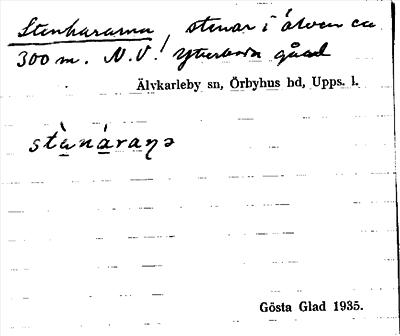 Stenhararna, stenar i älven ca
300 m. N.V. Ytterboda gård
Älvkarleby sn, Örbyhus hd, Upps. l.
stè̱na̱raƞə
Gösta Glad 1935.